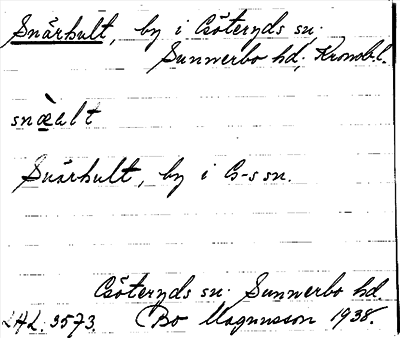 Snärhult, by i Göteryds sn.
Sunnerbo hd, Kronob. l.
snæ̀alt
Snärhult, by i G-s sn.
Göteryds sn. Sunnerbo hd.
LAL. 3573. Bo Magnusson 1938.